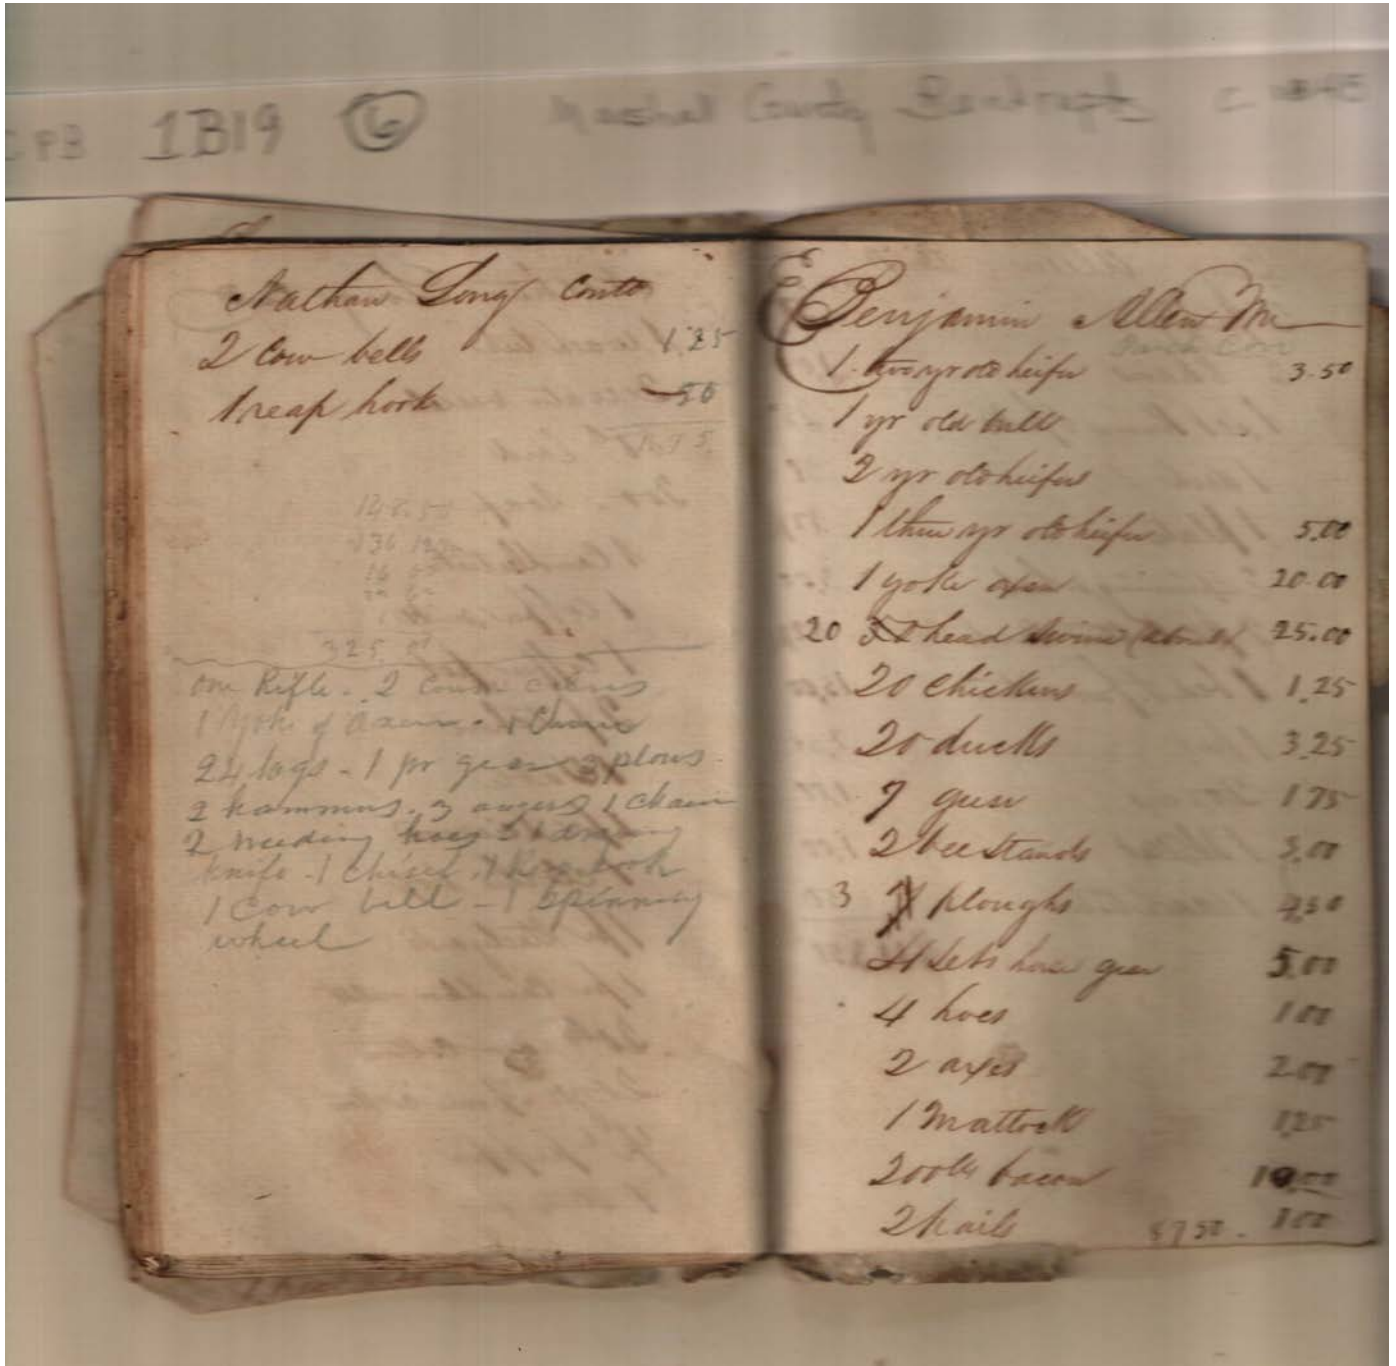 1B19 6 Marshal County Bankrupts
Nathan Long Contd
2 Cow bells 1.25
1 reap hook 50
1.75
325
one Rifle - 2
1 Yoke of Oxen - 1
24 hogs - 1 pr gear 3 plows
2 hammers. 3 augers 1 chain
2 weeding hoes 1 drawing
knife - 1 chisel
1 Cow bell - 1 Spinning
wheel
Benjamin Allen
1 two yr old heifer 3.50
1 yr old bull
2 yr old heifers
1 three yr old heifer 5.00
1 yoke oxen 20.00
20 head swine 25.00
20 chickens 1.25
20 ducks 3.25
7 geese 1 75
2 bee stands 3.00
3 ploughs
4 sets horse gear 5.00
4 hoes 1 00
2 axes 2.00
1 Mattock 1.25
200 lbs bacon 10.00
2 pails 87 50. 1 00